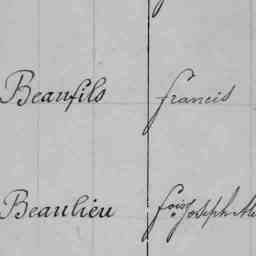 Beaufils francis
Beaulieu fois Joseph